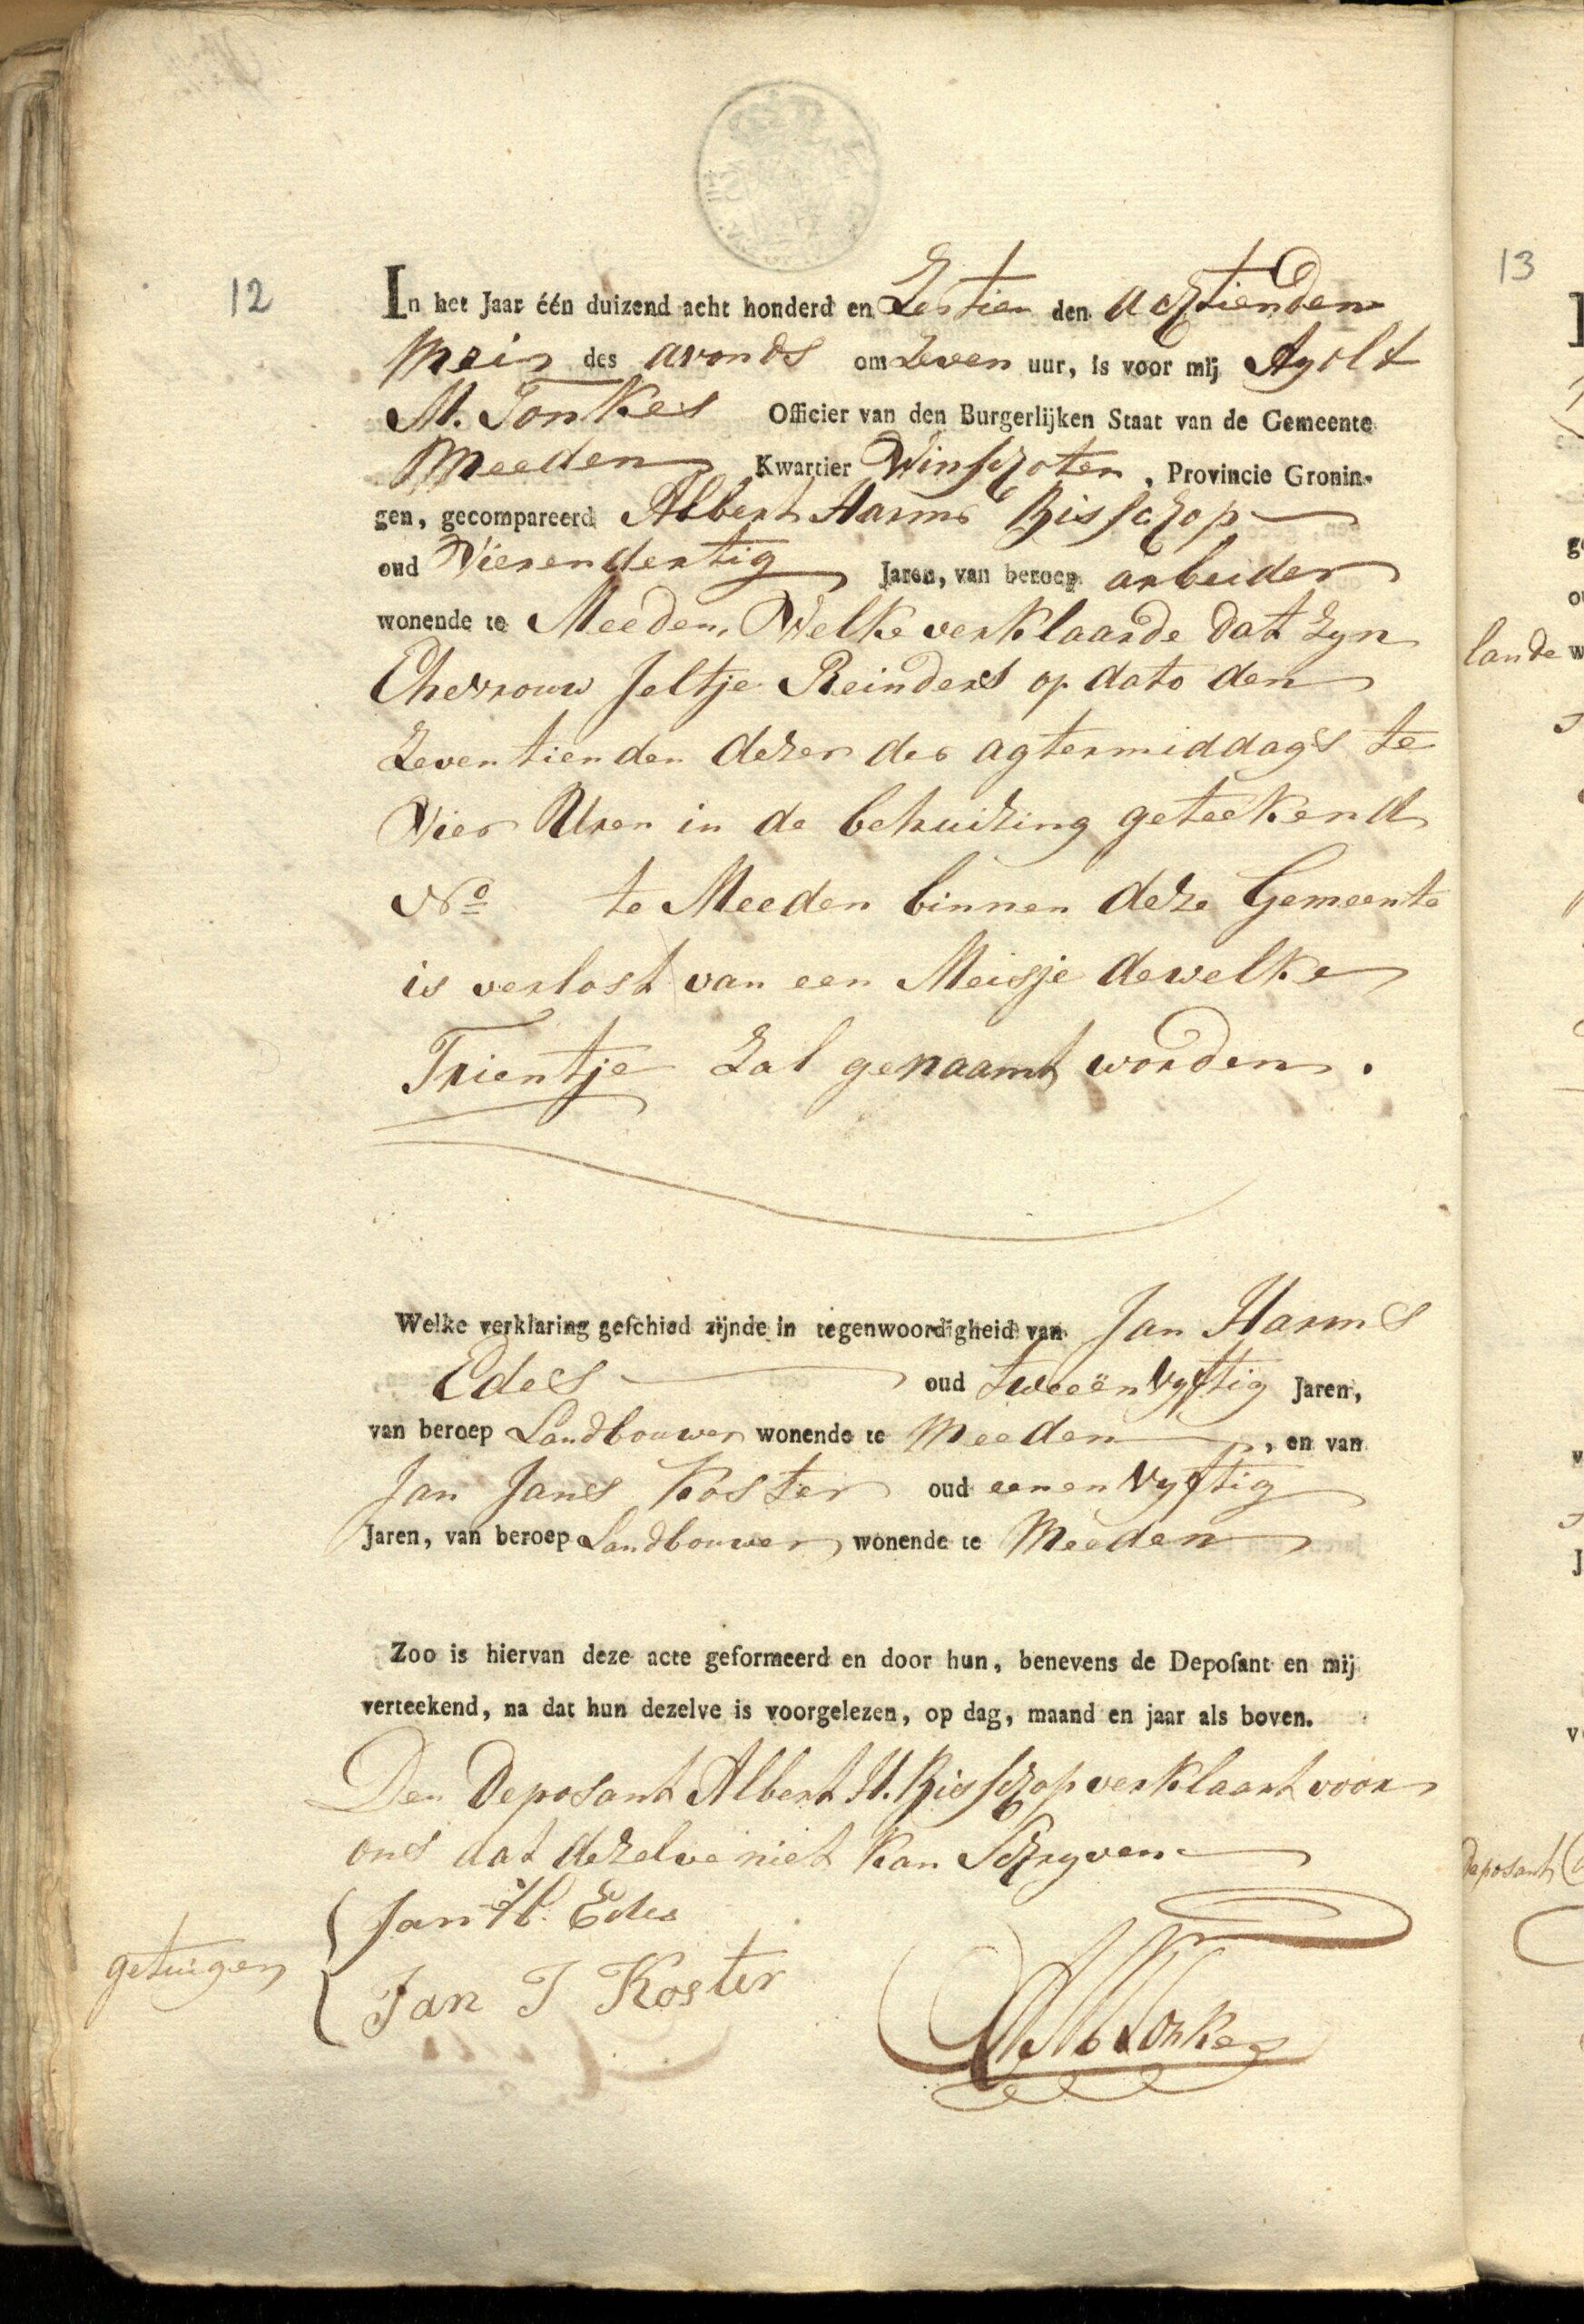 12
In het Jaar één duizend acht honderd en Zestien den achtienden
Mei des avonds om Zeven uur, is voor mij Ayolt
M. Tonkes Officier van den Burgerlijken Staat van de Gemeente
Meeden Kwartier Winschoten, Provincie Gronin-
gen, gecompareerd Albert Harms Bisschop
oud Vierendertig Jaren, van beroep arbeider
wonende te Meeden, Welke verklaarde dat Zyn
Ehevrouw Jeltje Reinders op dato den
Zeventienden dezer des agtermiddags te
Vier Uren in de behuizing geteekend
No te Meeden binnen deze Gemeente
is verlost van een Meisje dewelke
Trientje Zal genaamt worden.
Welke verklaring geschied zijnde in tegenwoordigheid van Jan Harms
Edes oud tweeënvyftig Jaren,
van beroep Landbouwer wonende te Meeden, en van
Jan Jans Koster oud eenenvyftig
Jaren, van beroep Landbouwer wonende te Meeden
Zoo is hiervan deze acte geformeerd en door hun, benevens de Deposant en mij
verteekend, na dat hun dezelve is voorgelezen, op dag, maand en jaar als boven.
Den Deposant Albert H. Bisschop verklaart voor
ons dat dezelve niet kan Schryven
Jan H. Edes
getuigen
Jan J Koster
AMTonkes
13
lande
deposant